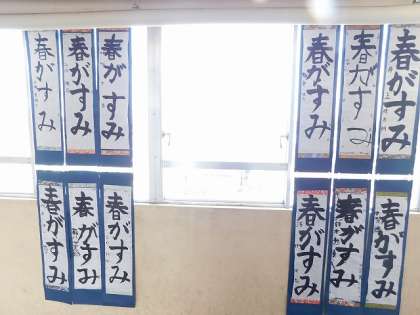 春がすみ
春がすみ
春がすみ
春がすみ
春がすみ
春がすみ
春がすみ
春がすみ
春がすみ
春がすみ
春がすみ
春がすみ